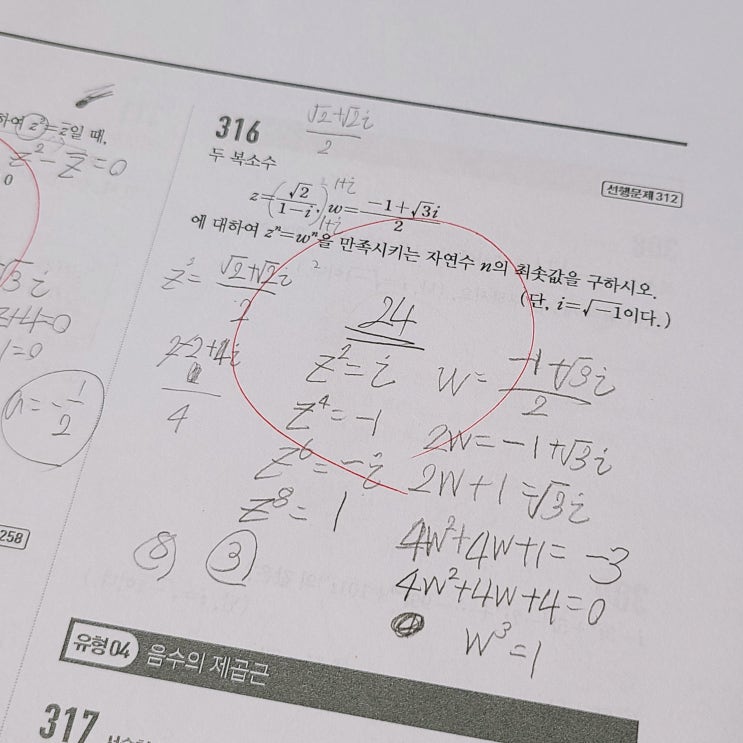 하여 z²=z̄일 때,
z²-z̄=0
0
√3i
+4=0
1=0
a=-1/2
258
316
(√2+√2i)/2
두 복소수
선행문제 312
z=(√2/(1-i)), w=(-1+√3i)/2
1+i
1+i
에 대하여 zⁿ=wⁿ을 만족시키는 자연수 n의 최솟값을 구하시오.
(단, i=√-1이다.)
z²=(√2+√2i)/2
24
4
z²=i
z⁴=-1
z⁶=-i
z⁸=1
⑧ ③
w=(-1+√3i)/2
2w=-1+√3i
2w+1=√3i
4w²+4w+1=-3
4w²+4w+4=0
w³=1
유형04 음수의 제곱근
317